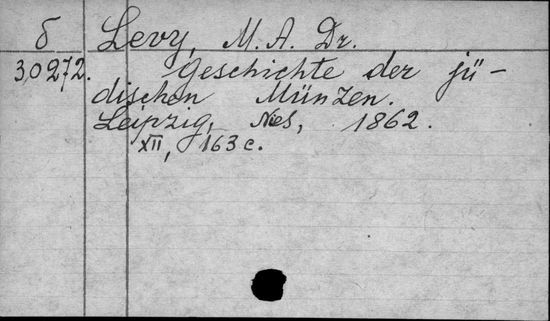 б Levy, M. A. Dr.
30272. Geschichte der jü-
dischen Münzen.
Leipzig, Nies, 1862.
XII, 163 c.